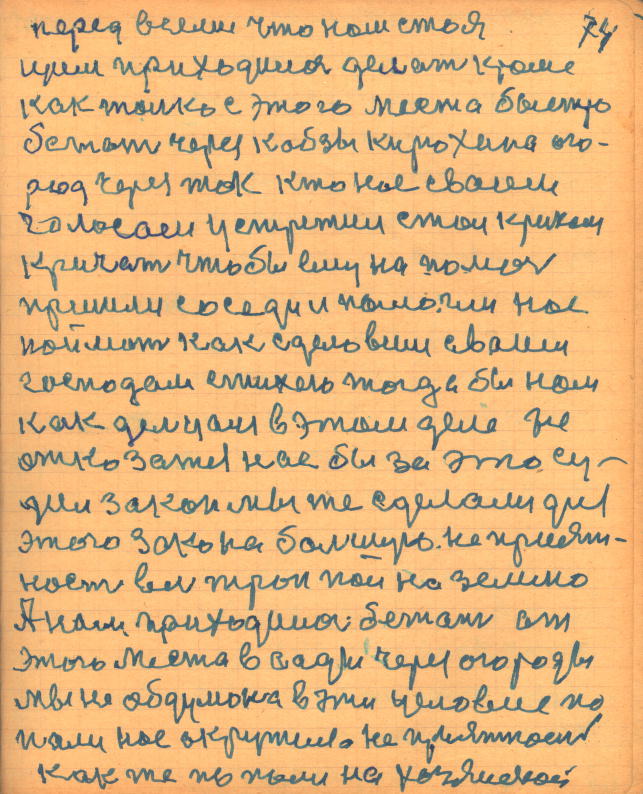 перед всеми что нам стоя 74
ими приходился делат кроме
как только с этого места быстро
бежат через кобзы Кирюхина ого-
род через ток кто нас своеи
голосам устретил стои криком
Кричат чтобы ему на помоч
пришли соседи и помогли нас
поймат как сделовши своеи
господам стихею тогда бы нам
как делцам в этом деле не
отказатся нас бы за это су-
дил закон мы же сделали для
этого закона большую неприят-
ност
на землю
А нам приходился бежат от
этого места в сади через огороды
мы не обдумона в эти условие по
пали нас окружило не приятност
как же попали на хозяиской